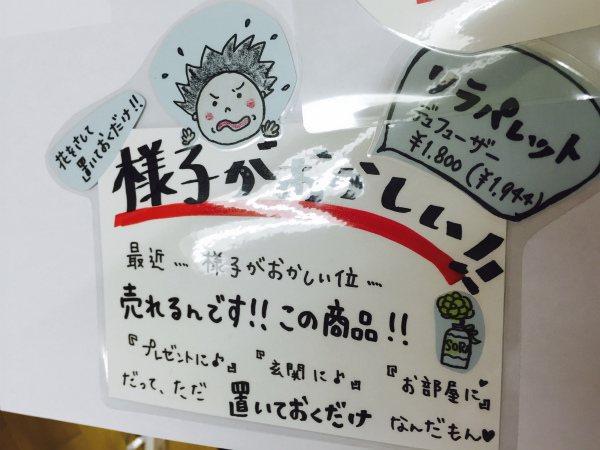 花をさして
置いておくだけ!!
リラパレット
デュフューザー
¥1.800(¥1.944)
様子がおかしい!!
最近…様子がおかしい位…
売れるんです!!この商品!!
『プレゼントに♪』『玄関に♪』『お部屋に♥』
だって、ただ置いておくだけなんだもん♥
SORA